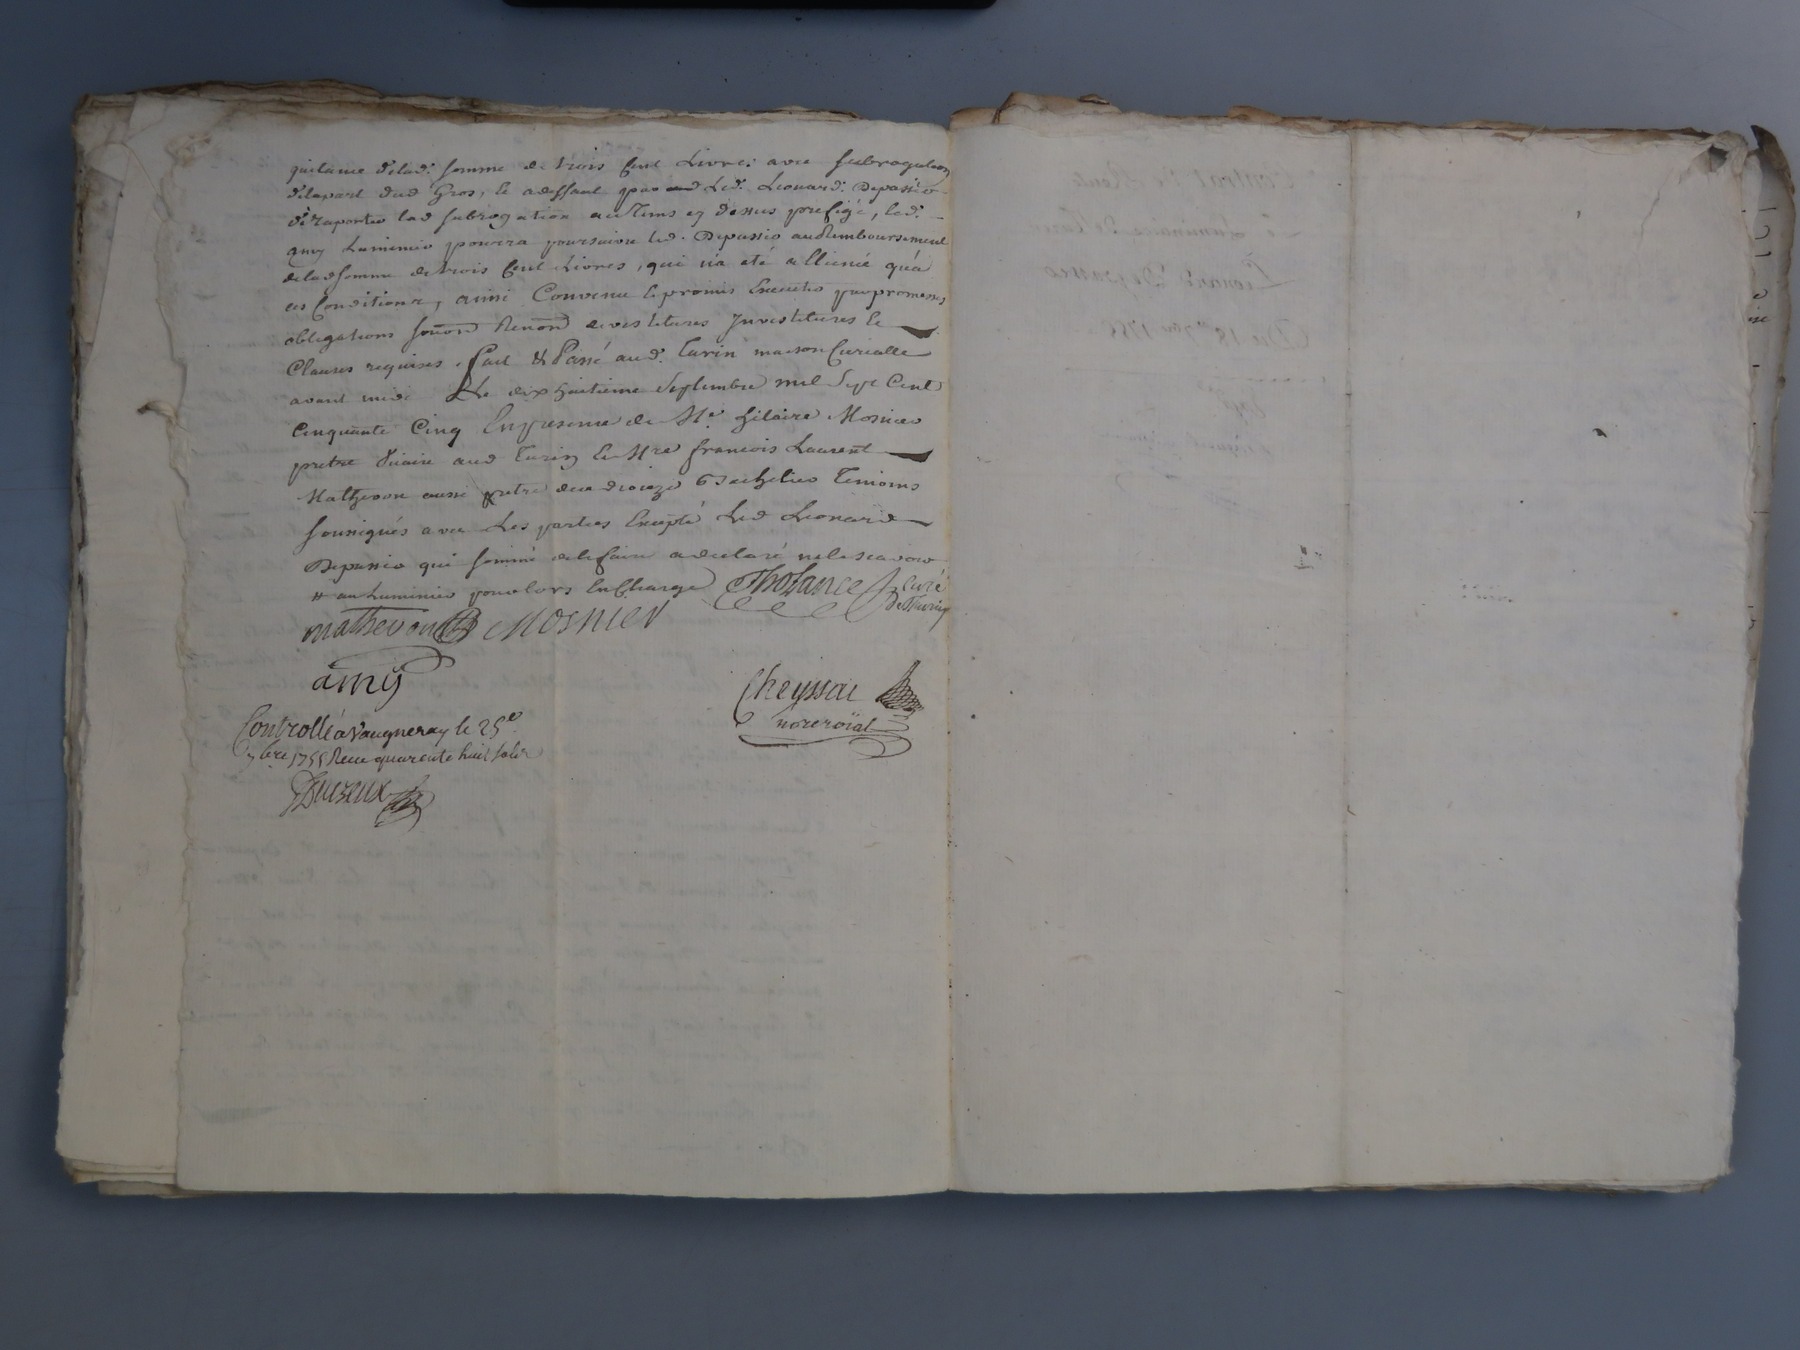 quitance delad. somme de trois Cent Livres avec subrogation
delapart dud Gros, Et adeffaut par Led. Leonard Depassio
de raporter lad subrogation au Tems cy dessus prefigé, led.
amy Luminier pourra poursuivre led. Depassio au Remboursement
de lad somme de trois Cent Livres, qui n'a eté alliené qu'a
ces Conditions, ainsi Convenu Et promis Executer par promesses
obligations soûon Renon devestitures Investitures Et
Clauses requises. Fait & Passé aud. Turin maison Curialle
avant midi Le dix huitieme Septembre mil Sept Cent
Cinquante Cinq En presence de Mre. hilaire Mosnier
pretre Vicaire aud Turin Et Mre francois Laurent
Mathevon aussi pretre de ce dioceze Temoins
sousignés avec Les parties Excepté Led Leonard
Depassio qui sommé de le faire a declaré ne le scavoir
# au Luminier pour lors En Charge Tholance Curé
de Thurin
Mathevon Mosnier
amy
Cheyssac
nore roïal
Controllé a Vaugneray le 25e
7bre 1755 Receu quarente huit sols
Contrat De Rente
Le Luminaire De Turin
Leonard Depassio
Du 18e 7bre 1755